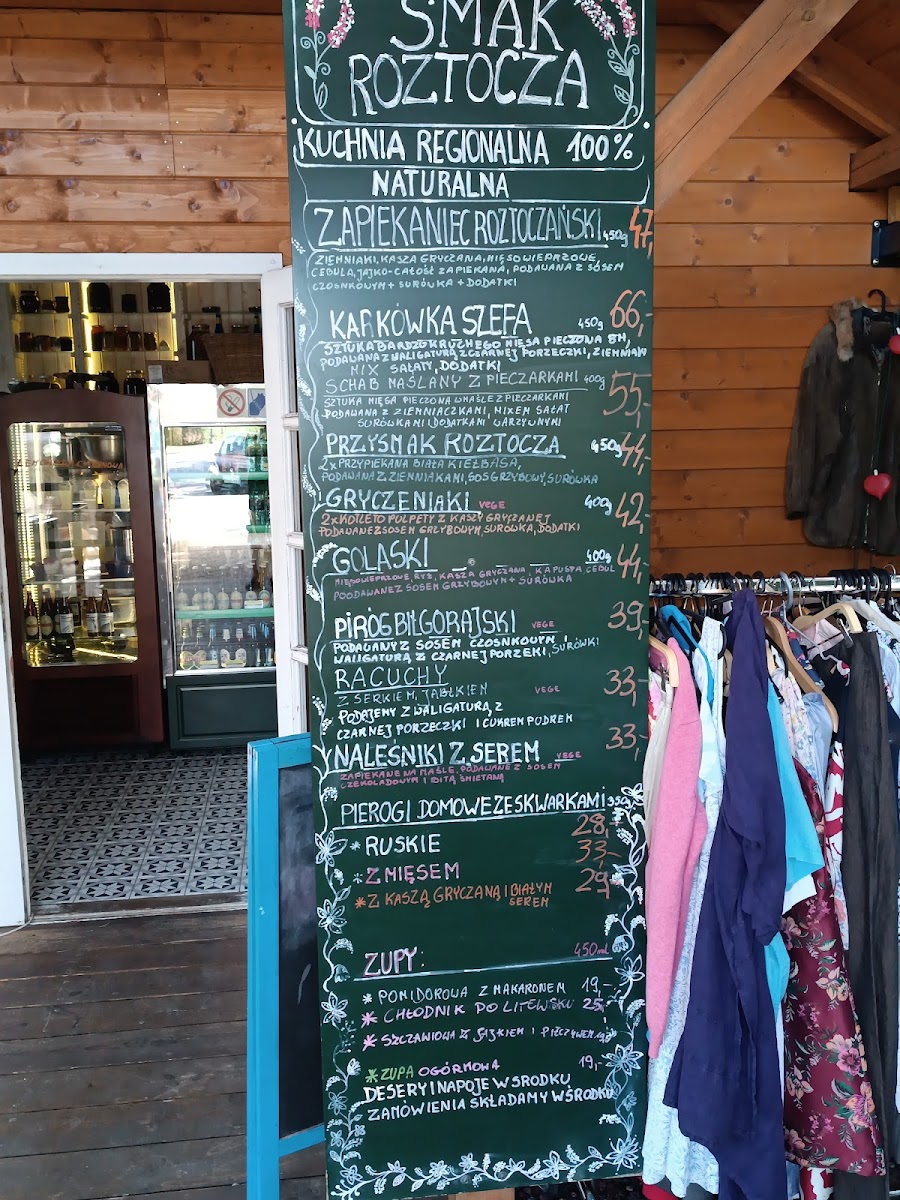 SMAK
ROZTOCZA
KUCHNIA REGIONALNA 100%
NATURALNA
ZAPIEKANIEC ROZTOCZAŃSKI 450g 47,-
ZIEMNIAKI, KASZA GRYCZANA, MIĘSO WIEPRZOWE,
CEBULA, JAJKO-CAŁOŚĆ ZAPIEKANA, PODAWANA Z SOSEM
CZOSNKOWYM + SURÓWKA + DODATKI
KARKÓWKA SZEFA 450g 66,-
SZTUKA BARDZO KRUCHEGO MIĘSA PIECZONA 8H,
PODAWANA Z WALIGATURĄ Z CZARNEJ PORZECZKI, ZIEMNIAKI
MIX SAŁATY, DODATKI
SCHAB MAŚLANY Z PIECZARKAMI 400g 55,-
SZTUKA MIĘSA PIECZONA W MAŚLE Z PIECZARKAMI
PODAWANA Z ZIEMNIACZKAMI, MIXEM SAŁAT
SURÓWKAMI I DODATKAMI WARZYWNYMI
PRZYSMAK ROZTOCZA 450g 44,-
2x PRZYPIEKANA BIAŁA KIEŁBASA,
PODAWANA Z ZIEMNIAKAMI, SOS GRZYBOWY, SURÓWKA
GRYCZENIAKI VEGE 400g 42,-
2x KOTLETO PULPETY Z KASZY GRYCZANEJ
PODAWANE Z SOSEM GRZYBOWYM, SURÓWKA, DODATKI
GOLASKI 400g 44,-
MIĘSO WIEPRZOWE, RYŻ, KASZA GRYCZANA, KAPUSTA, CEBUL
POODAWANE Z SOSEM GRZYBOWYM + SURÓWKA
PIRÓG BIŁGORAJSKI VEGE 39,-
PODAWANY Z SOSEM CZOSNKOWYM I
WALIGATURĄ Z CZARNEJ PORZEKI, SURÓWKI
RACUCHY 33,-
Z SERKIEM, JABŁKIEM VEGE
PODAJEMY Z WALIGATURĄ Z
CZARNEJ PORZECZKI I CUKREM PUDREM
NALEŚNIKI Z SEREM VEGE 33,-
ZAPIEKANE NA MAŚLE, PODAWANE Z SOSEM
CZEKOLADOWYM I BITĄ ŚMIETANĄ
PIEROGI DOMOWE ZE SKWARKAMI 350g
* RUSKIE 28,-
* Z MIĘSEM 33,-
* Z KASZĄ GRYCZANĄ I BIAŁYM 29,-
SEREM
ZUPY: 450ml
* POMIDOROWA Z MAKARONEM 19,-
* CHŁODNIK PO LITEWSKU 25,-
* SZCZAWIOWA Z JAJKIEM I PIECZYWEM
* ZUPA OGÓRKOWA 19,-
DESERY I NAPOJE W SRODKU
ZAMÓWIENIA SKŁADAMY W ŚRODKU